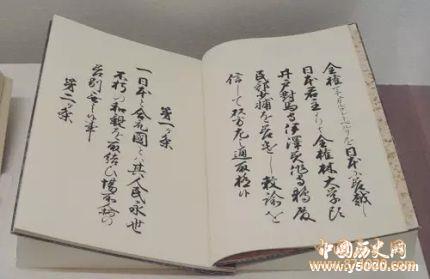 全権
を日本に差越し
日本君主よりは全権林大学頭
井戸對馬守伊澤美作守鵜殿
民部少輔を差遣し敕諭を
信して双方左之通取極候
第一ヶ条
一日本と合衆國とハ其人民永世
不朽の和親を取結ひ場所人柄の
差別無之事
第二ヶ条
中国历史网
www.ly5000.com